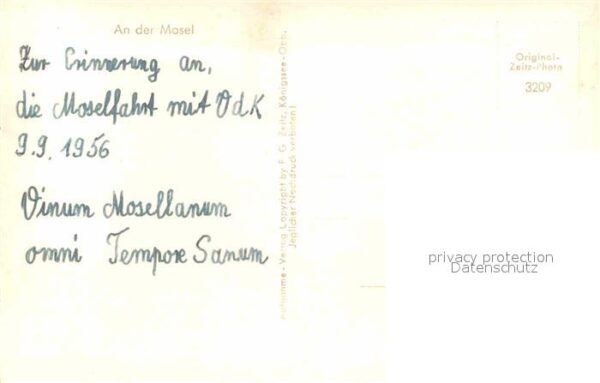 An der Mosel
Zur Erinnerung an,
die Moselfahrt mit VdK
9.9. 1956
Vinum Mosellanum
omni Tempore Sanum
Aufnahme-Verlag Copyright by F. G. Zeitz, Königssee-Obb.
Jeglicher Nachdruck verboten!
Original-
Zeitz-Photo
3209
privacy protection
Datenschutz